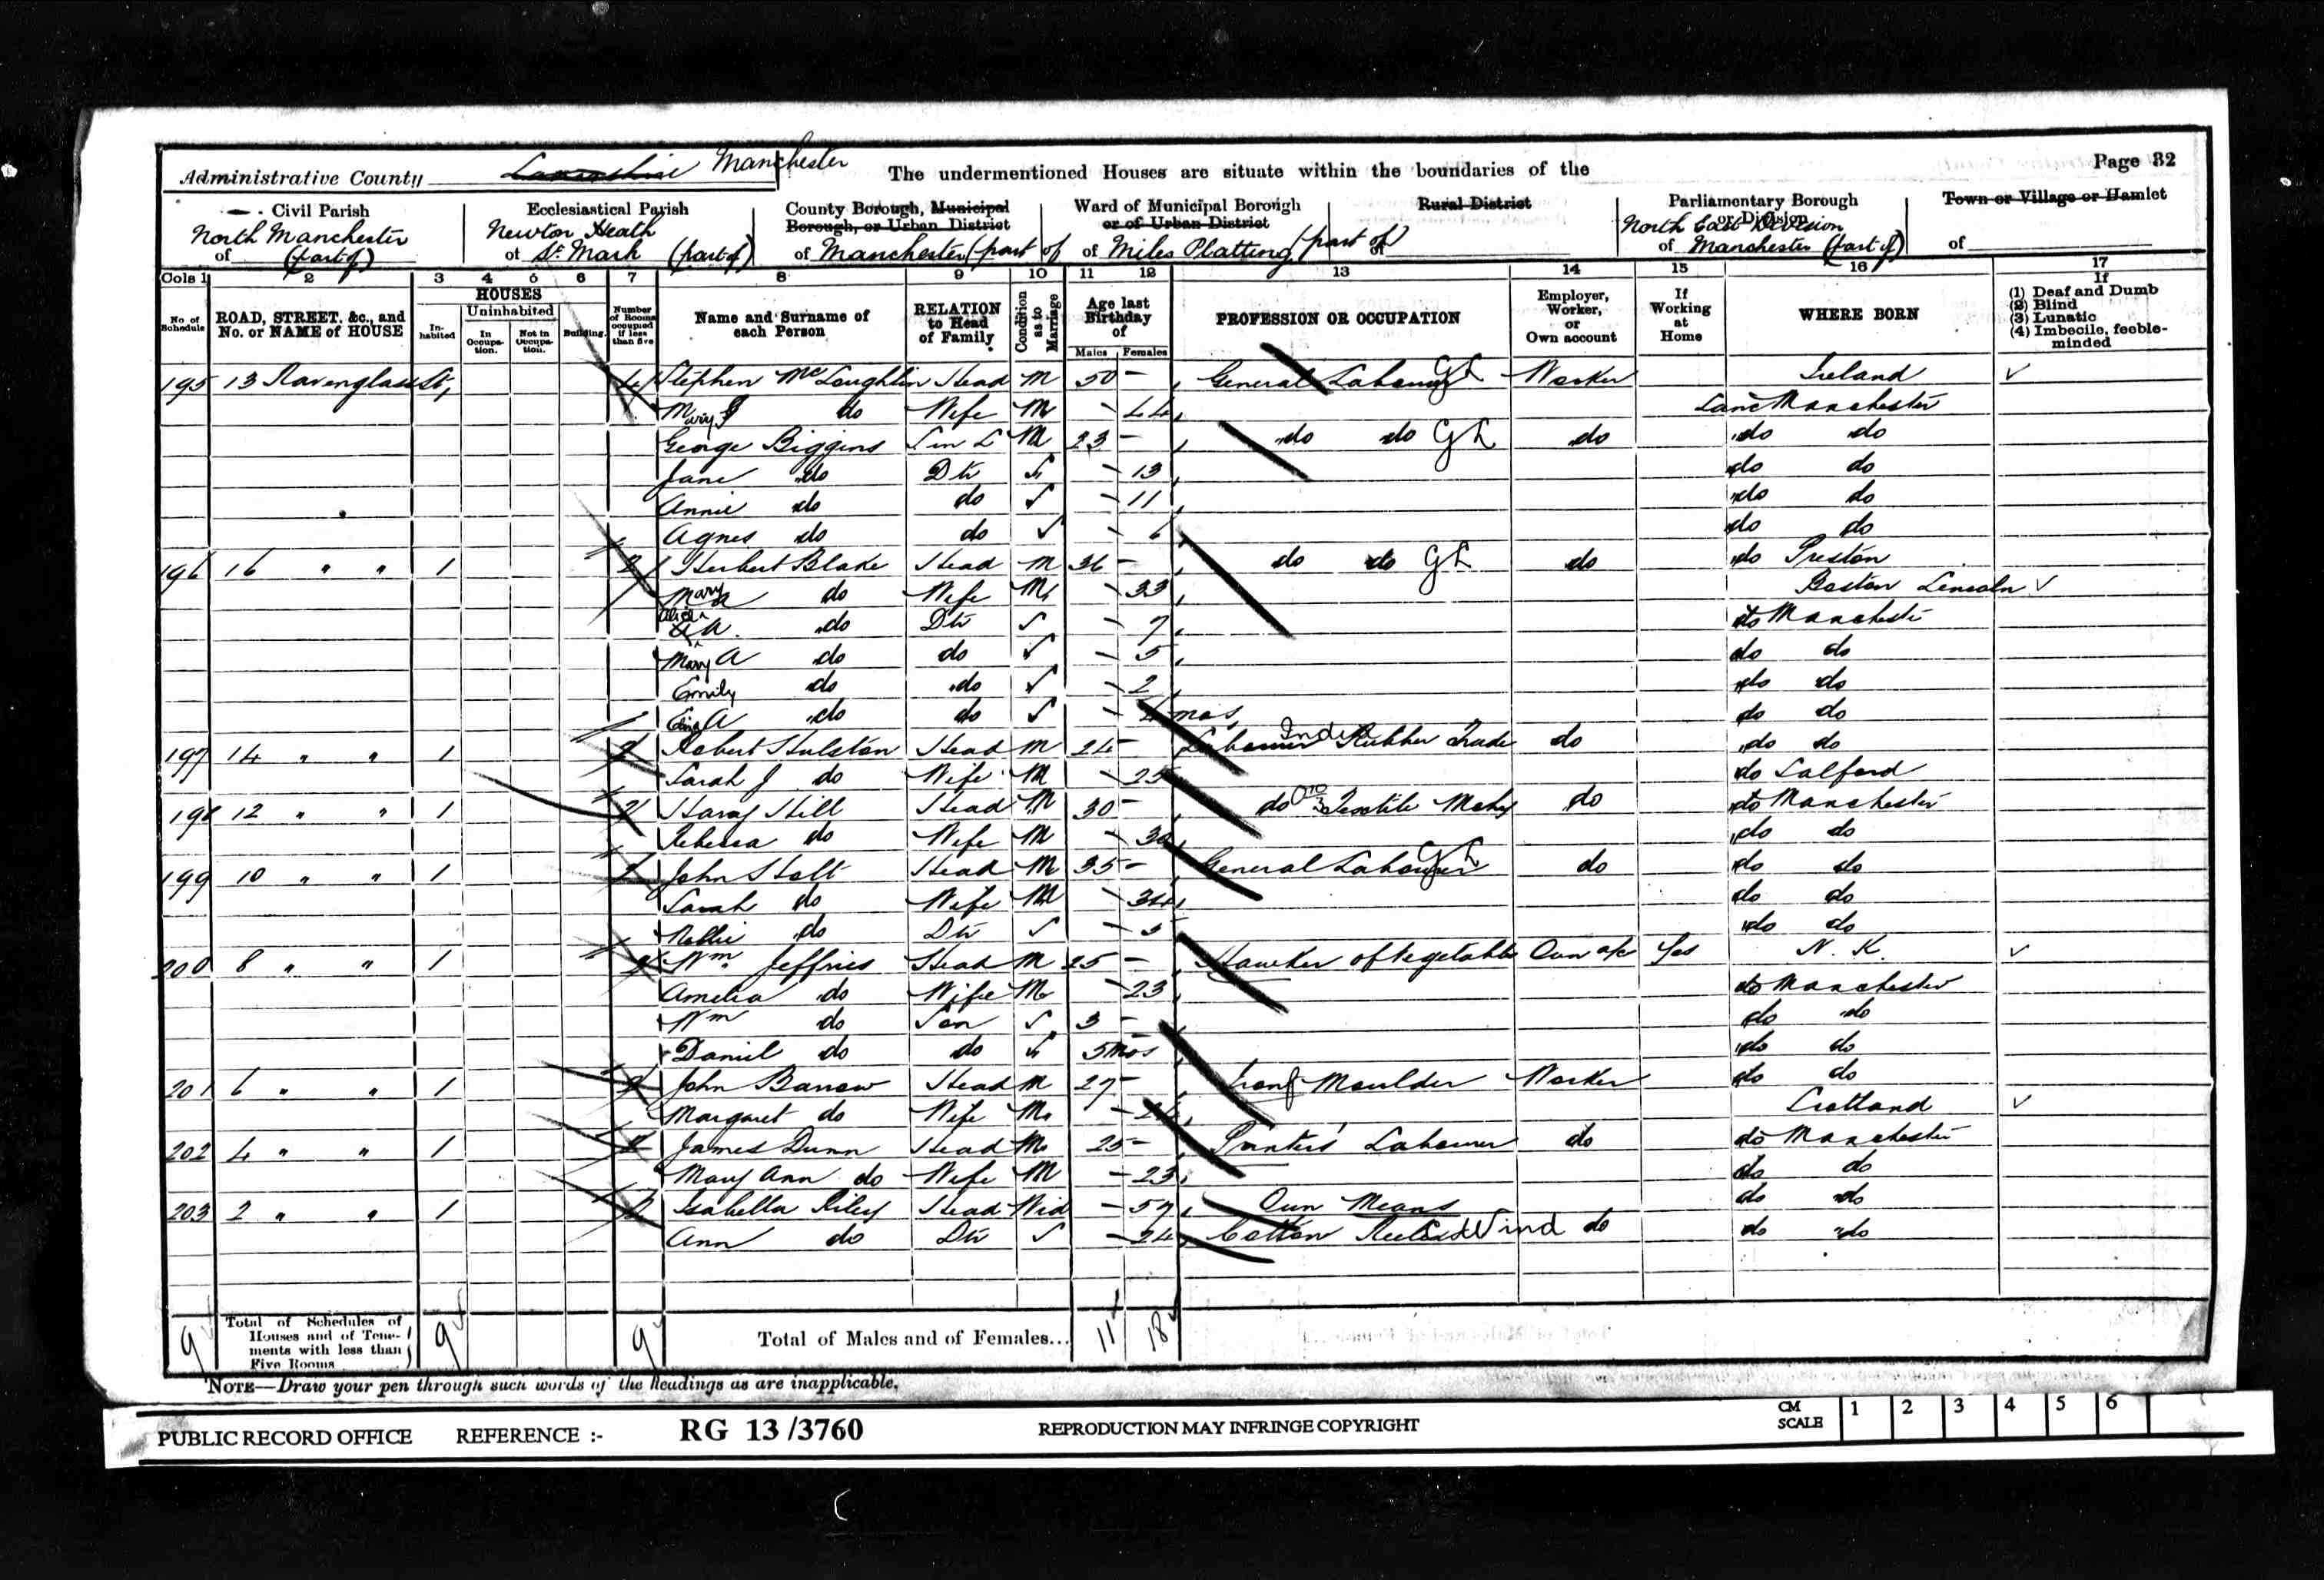 Page 32
Administrative County Lancashire Manchester The undermentioned Houses are situate within the boundaries of the
Civil Parish
North Manchester
of (part of)
Ecclesiastical Parish
Newton Heath
of St. Mark (part of)
County Borough, Municipal
Borough, or Urban District
of Manchester (part of
Ward of Municipal Borough
or of Urban District
of Miles Platting (part of)
Rural District
of
Parliamentary Borough
or Division
North East Division
of Manchester (part of)
Town or Village or Hamlet
of
Cols 1 2 3 4 5 6 7 8 9 10 11 12 13 14 15 16 17
No. of Schedule
ROAD, STREET, &c., and No. or NAME of HOUSE
HOUSES
Inhabited
Uninhabited
In Occupation.
Not in Occupation.
Building.
Number of Rooms occupied if less than five
Name and Surname of each Person
RELATION to Head of Family
Condition as to Marriage
Age last Birthday of
Males Females
PROFESSION OR OCCUPATION
Employer, Worker, or Own account
If Working at Home
WHERE BORN
If
(1) Deaf and Dumb
(2) Blind
(3) Lunatic
(4) Imbecile, feeble-minded
195 13 Ravenglass St, 4 Stephen McLoughlin Head M 50 - General Labourer GL Worker Ireland ✓
Mary do Wife M - 44 Lanc Manchester
George Biggins M 23 - do do GL do do do
Jane do Dtr ✓ - 13 do do
Annie do do ✓ - 11 do do
Agnes do do ✓ - 6 do do
196 16 " " 1 Herbert Blake Head M 36 - do do GL do do Preston
Mary A do Wife M - 33 Boston Lincoln ✓
Alice A. do Dtr ✓ - 7 do Manchester
Mary A do do ✓ - 5 do do
Emily do do ✓ - 2 do do
A do do ✓ - mos do do
197 14 " " 1 Robert Hulston Head M 24 - Labourer India Rubber Trade do do do
Sarah J do Wife M - 25 do Salford
198 12 " " 1 Harry Hill Head M 30 - do Textile do do Manchester
Rebecca do Wife M - 30 do do
199 10 " " 1 John Holt Head M 35 - General Labourer GL do do do
Sarah do Wife M - 34 do do
Nellie do Dtr ✓ - 5 do do
200 8 " " 1 Wm Jeffries Head M 25 - Hawker of Vegetables Own a/c Yes N. K. ✓
Amelia do Wife M - 23 do Manchester
Wm do Son ✓ 3 - do do
Daniel do do ✓ 5 mos do do
201 6 " " 1 John Barrow Head M 27 - Iron Moulder Worker do do
Margaret do Wife M - Scotland ✓
202 4 " " 1 James Dunn Head M 25 - Printers' Labourer do do Manchester
Mary Ann do Wife M - 23 do do
203 2 " " 1 Isabella Riley Head Wid - 57 Own Means do do
Ann do Dtr ✓ - 24 Cotton Wind do do do
9 Total of Schedules of Houses and of Tenements with less than Five Rooms 9 9 Total of Males and of Females... 11 18
NOTE—Draw your pen through such words of the headings as are inapplicable.
PUBLIC RECORD OFFICE REFERENCE :- RG 13 /3760 REPRODUCTION MAY INFRINGE COPYRIGHT CM SCALE 1 2 3 4 5 6